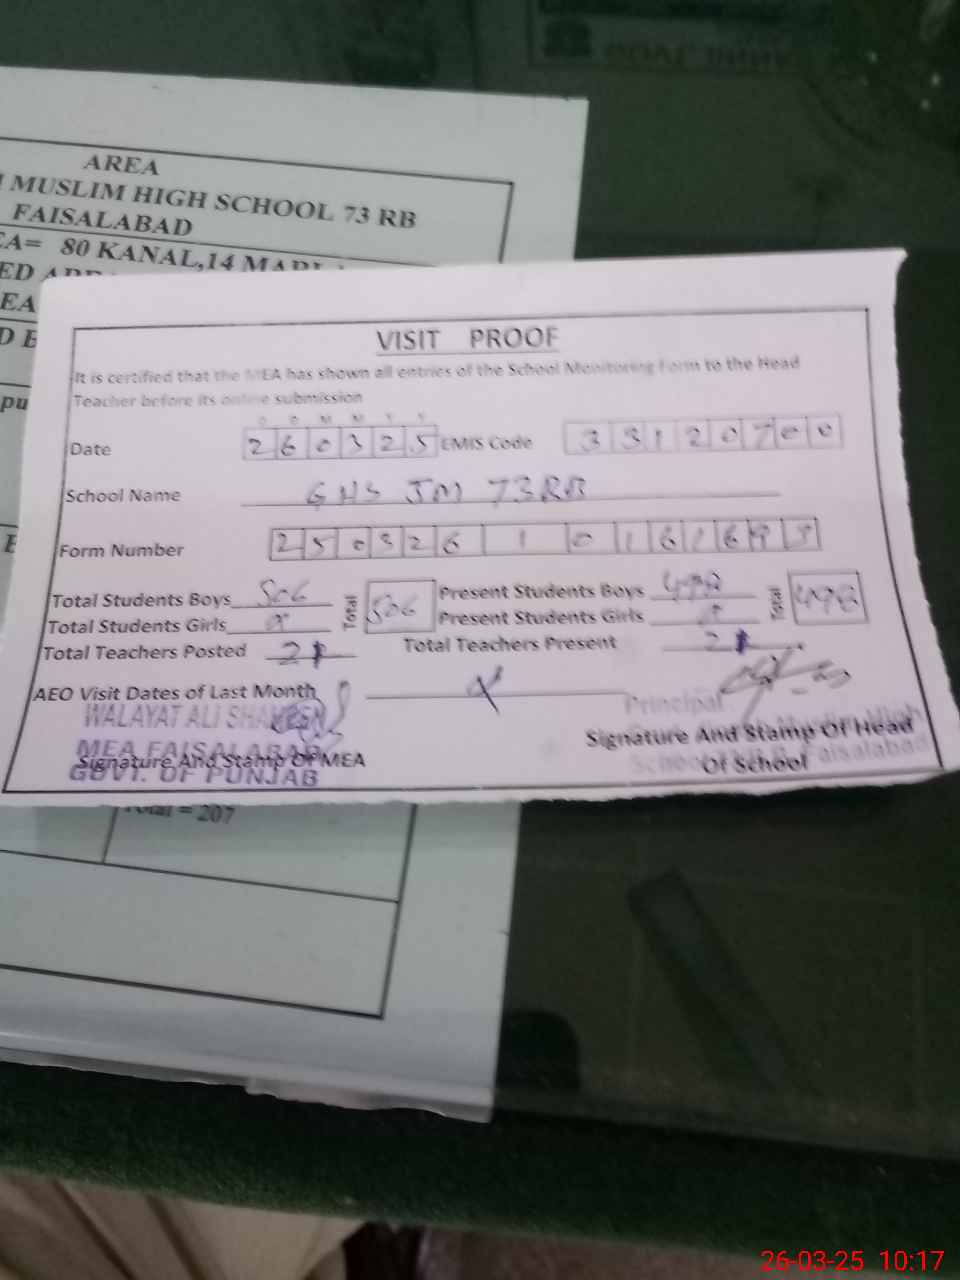 AREA
MUSLIM HIGH SCHOOL 73 RB
FAISALABAD
EA= 80 KANAL,14
ED
EA
VISIT PROOF
It is certified that the MEA has shown all entries of the School Monitoring Form to the Head
Teacher before its online submission
D D M M Y Y
Date 2 6 0 3 2 5 EMIS Code 3 3 1 2 0 7 0 0
School Name GHS JM 73RB
Form Number 2 5 0 3 2 6 1 0 1 6 1 6 9
Total Students Boys 506 Total 506 Present Students Boys 498 Total 498
Total Students Girls Present Students Girls
Total Teachers Posted 21 Total Teachers Present 21
AEO Visit Dates of Last Month
WALAYAT ALI
MEA FAISALABAD
GOVT. OF PUNJAB
Signature And Stamp Of MEA
Principal
Signature And Stamp Of Head
Of School
Faisalabad
Total = 207
26-03-25 10:17